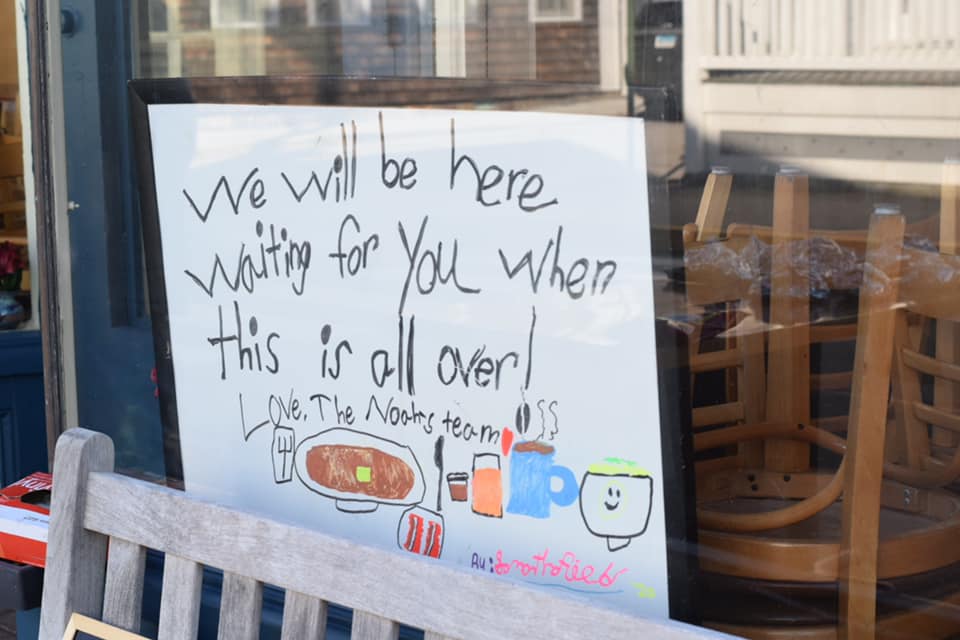 We will be here
waiting for you when
this is all over!
Love, The Noah's team
By: